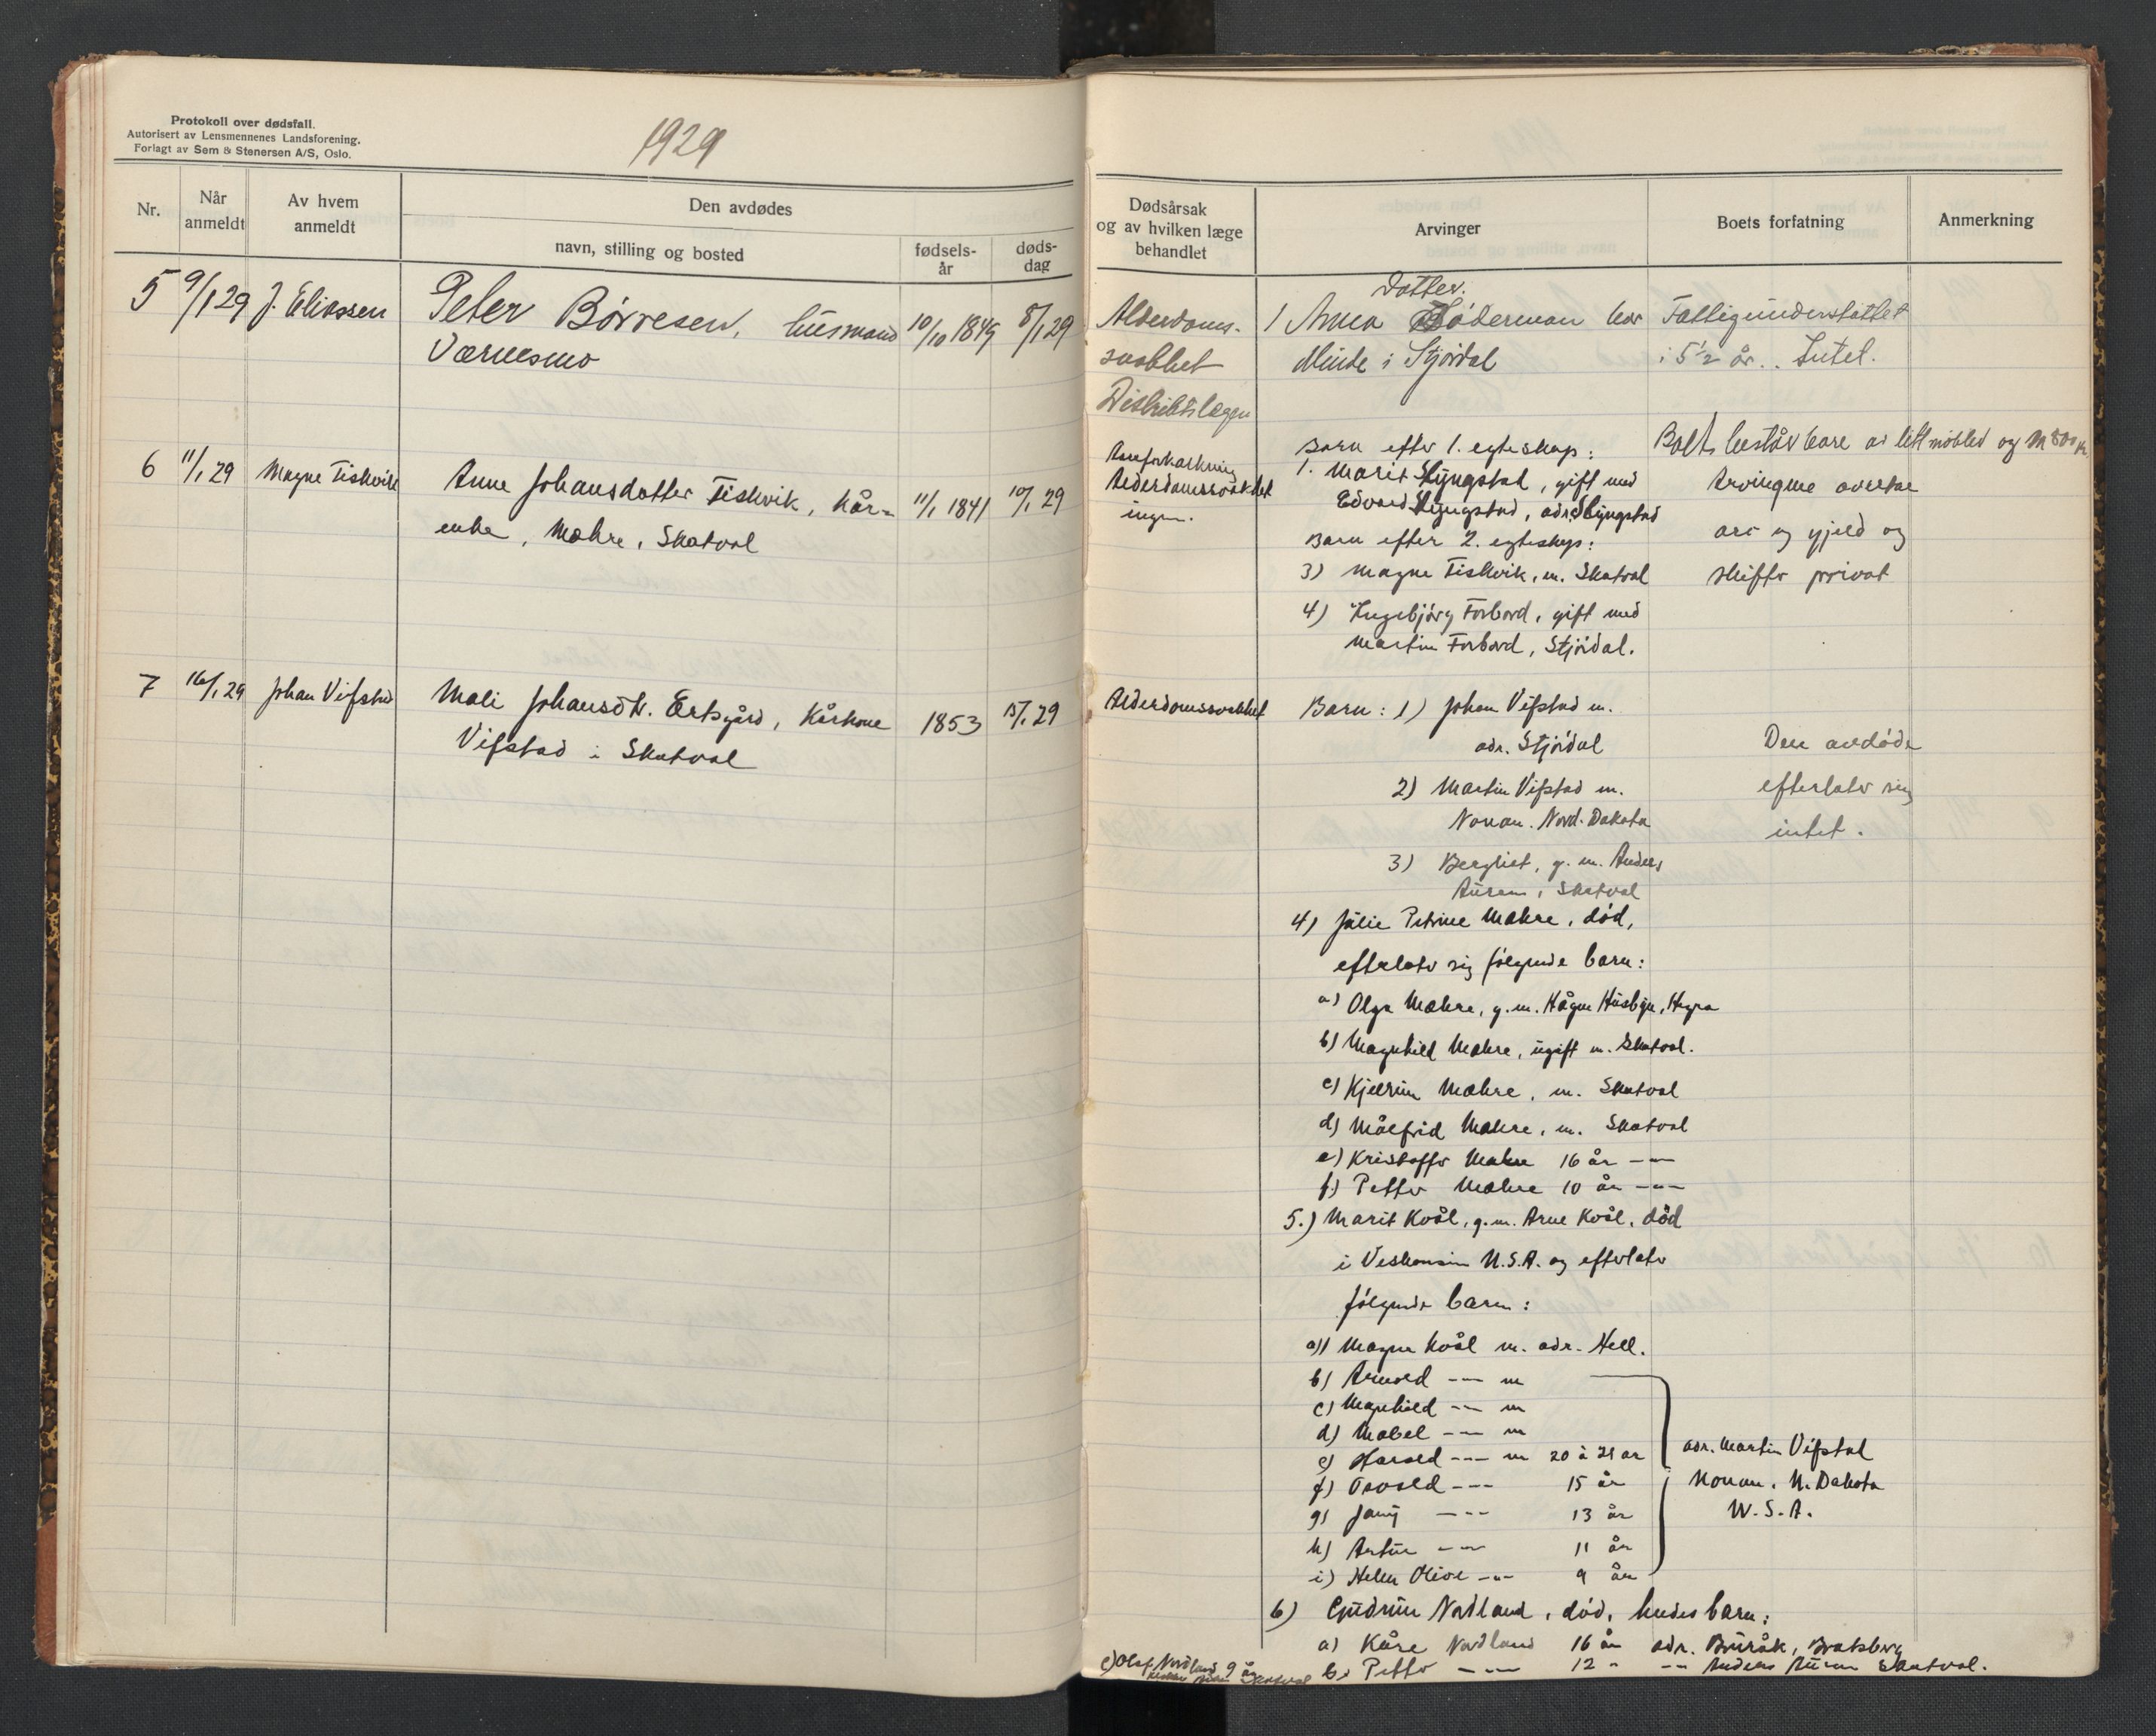 Protokoll over dødsfall.
Autorisert av Lensmennenes Landsforening.
Forlagt av Sem & Stenersen A/S, Oslo.
1929
Nr.
Når anmeldt
Av hvem anmeldt
Den avdødes
navn, stilling og bosted
fødsels-år
døds-dag
Dødsårsak og av hvilken læge behandlet
Arvinger
Boets forfatning
Anmerkning
5 9/1 29 J. Eliassen Peter Børresen, husmand 10/10 1849 8/1 29
Værnesmo
Alderdoms-
svakhet
Distriktslægen
Datter.
1 Anna Söderman har
Minde i Stjørdal
Fattigunderstøttet
i 5½ år.. Intet.
6 11/1 29 Magne Fiskvik Anne Johansdatter Fiskvik, kår- 11/1 1841 10/1 29
enke, Mæhre, Skatval
Åreforkalkning
Alderdomssvakhet
ingen.
Barn efter 1. egteskap:
1. Marit Slyngstad, gift med
Edvard Slyngstad, adr. Slyngstad
Barn efter 2. egteskap:
3) Magne Fiskvik, m. Skatval
4) Ingebjørg Forbord, gift med
Martin Forbord, Stjørdal.
Boet består bare av litt møbler og
Arvingene overtar
arv og gjeld og
skifter privat
7 16/1 29 Johan Vifstad Mali Johansdtr. Ertsgård, Kårkone 1853 15/1 29
Vifstad i Skatval
Alderdomssvakhet
Barn: 1) Johan Vifstad m.
adr. Stjørdal
2) Martin Vifstad m.
Nord. Dakota
3) Bergliot, g. m. Anders
Auran, Skatval
Den avdøde
efterlater sig
intet.
4) Julie Petrine Mæhre, død,
efterlater sig følgende barn:
a) Olga Mæhre, g. m. Hågen Husbyn, Hegra
b) Magnhild Mæhre, ugift m. Skatval.
c) Kjellrun Mæhre, m. Skatval
d) Målfrid Mæhre, m. Skatval
e) Kristoffer Mæhre 16 år -"-
f) Petter Mæhre 10 år -"-
5.) Marit Kvål, g. m. Arne Kvål, død
i Viskonsin U.S.A. og efterlater
følgende barn:
a) Magne Kvål m. adr. Hell.
b) Arnold -"- m
c) Magnhild -"- m
d) Mabel -"- m
e) Harald -"- m 20 à 21 år
f) Osvald -"- 15 år
g) -"- 13 år
h) Artur -"- 11 år
i) Helen Olive -"- 9 år
adr. Martin Vifstad
N. Dakota
U.S.A.
6) Gudrun Nordland, død, hendes barn:
a) Kåre Nordland 16 år adr. Bruråk, Bratsberg
b) Petter -"- 12 " -"- Anders Auran Skatval.
c) Olaf Nordland 9 år
Skatval